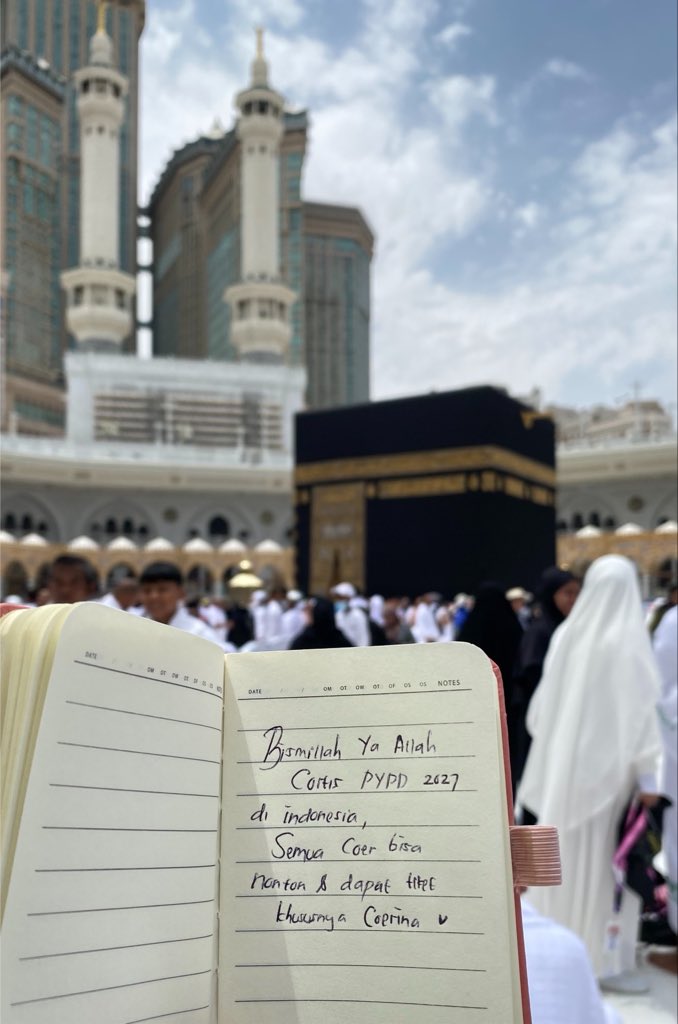 DATE
NOTES
DATE
NOTES
Bismillah Ya Allah
Cortis PYPD 2027
di indonesia,
Semua Coer bisa
nonton & dapat tiket
khususnya Coerina